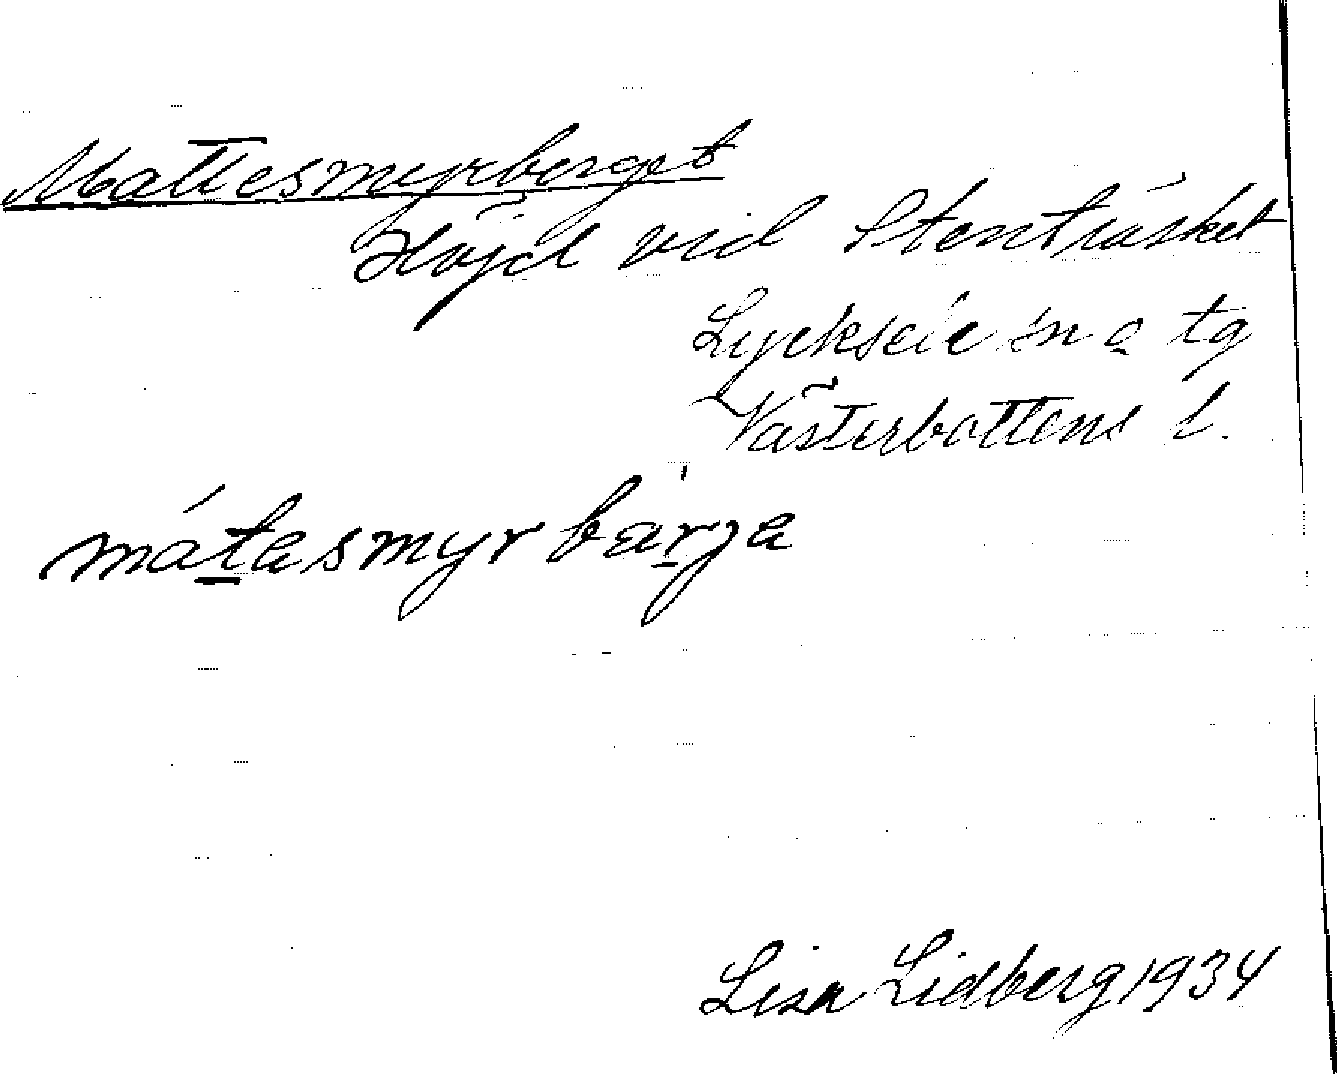 Mattesmyrberget
Höjd vid Stenträsket
Lycksele sn o tg
Västerbottens l.
mátasmyrbärja
Lisa Lidberg 1934